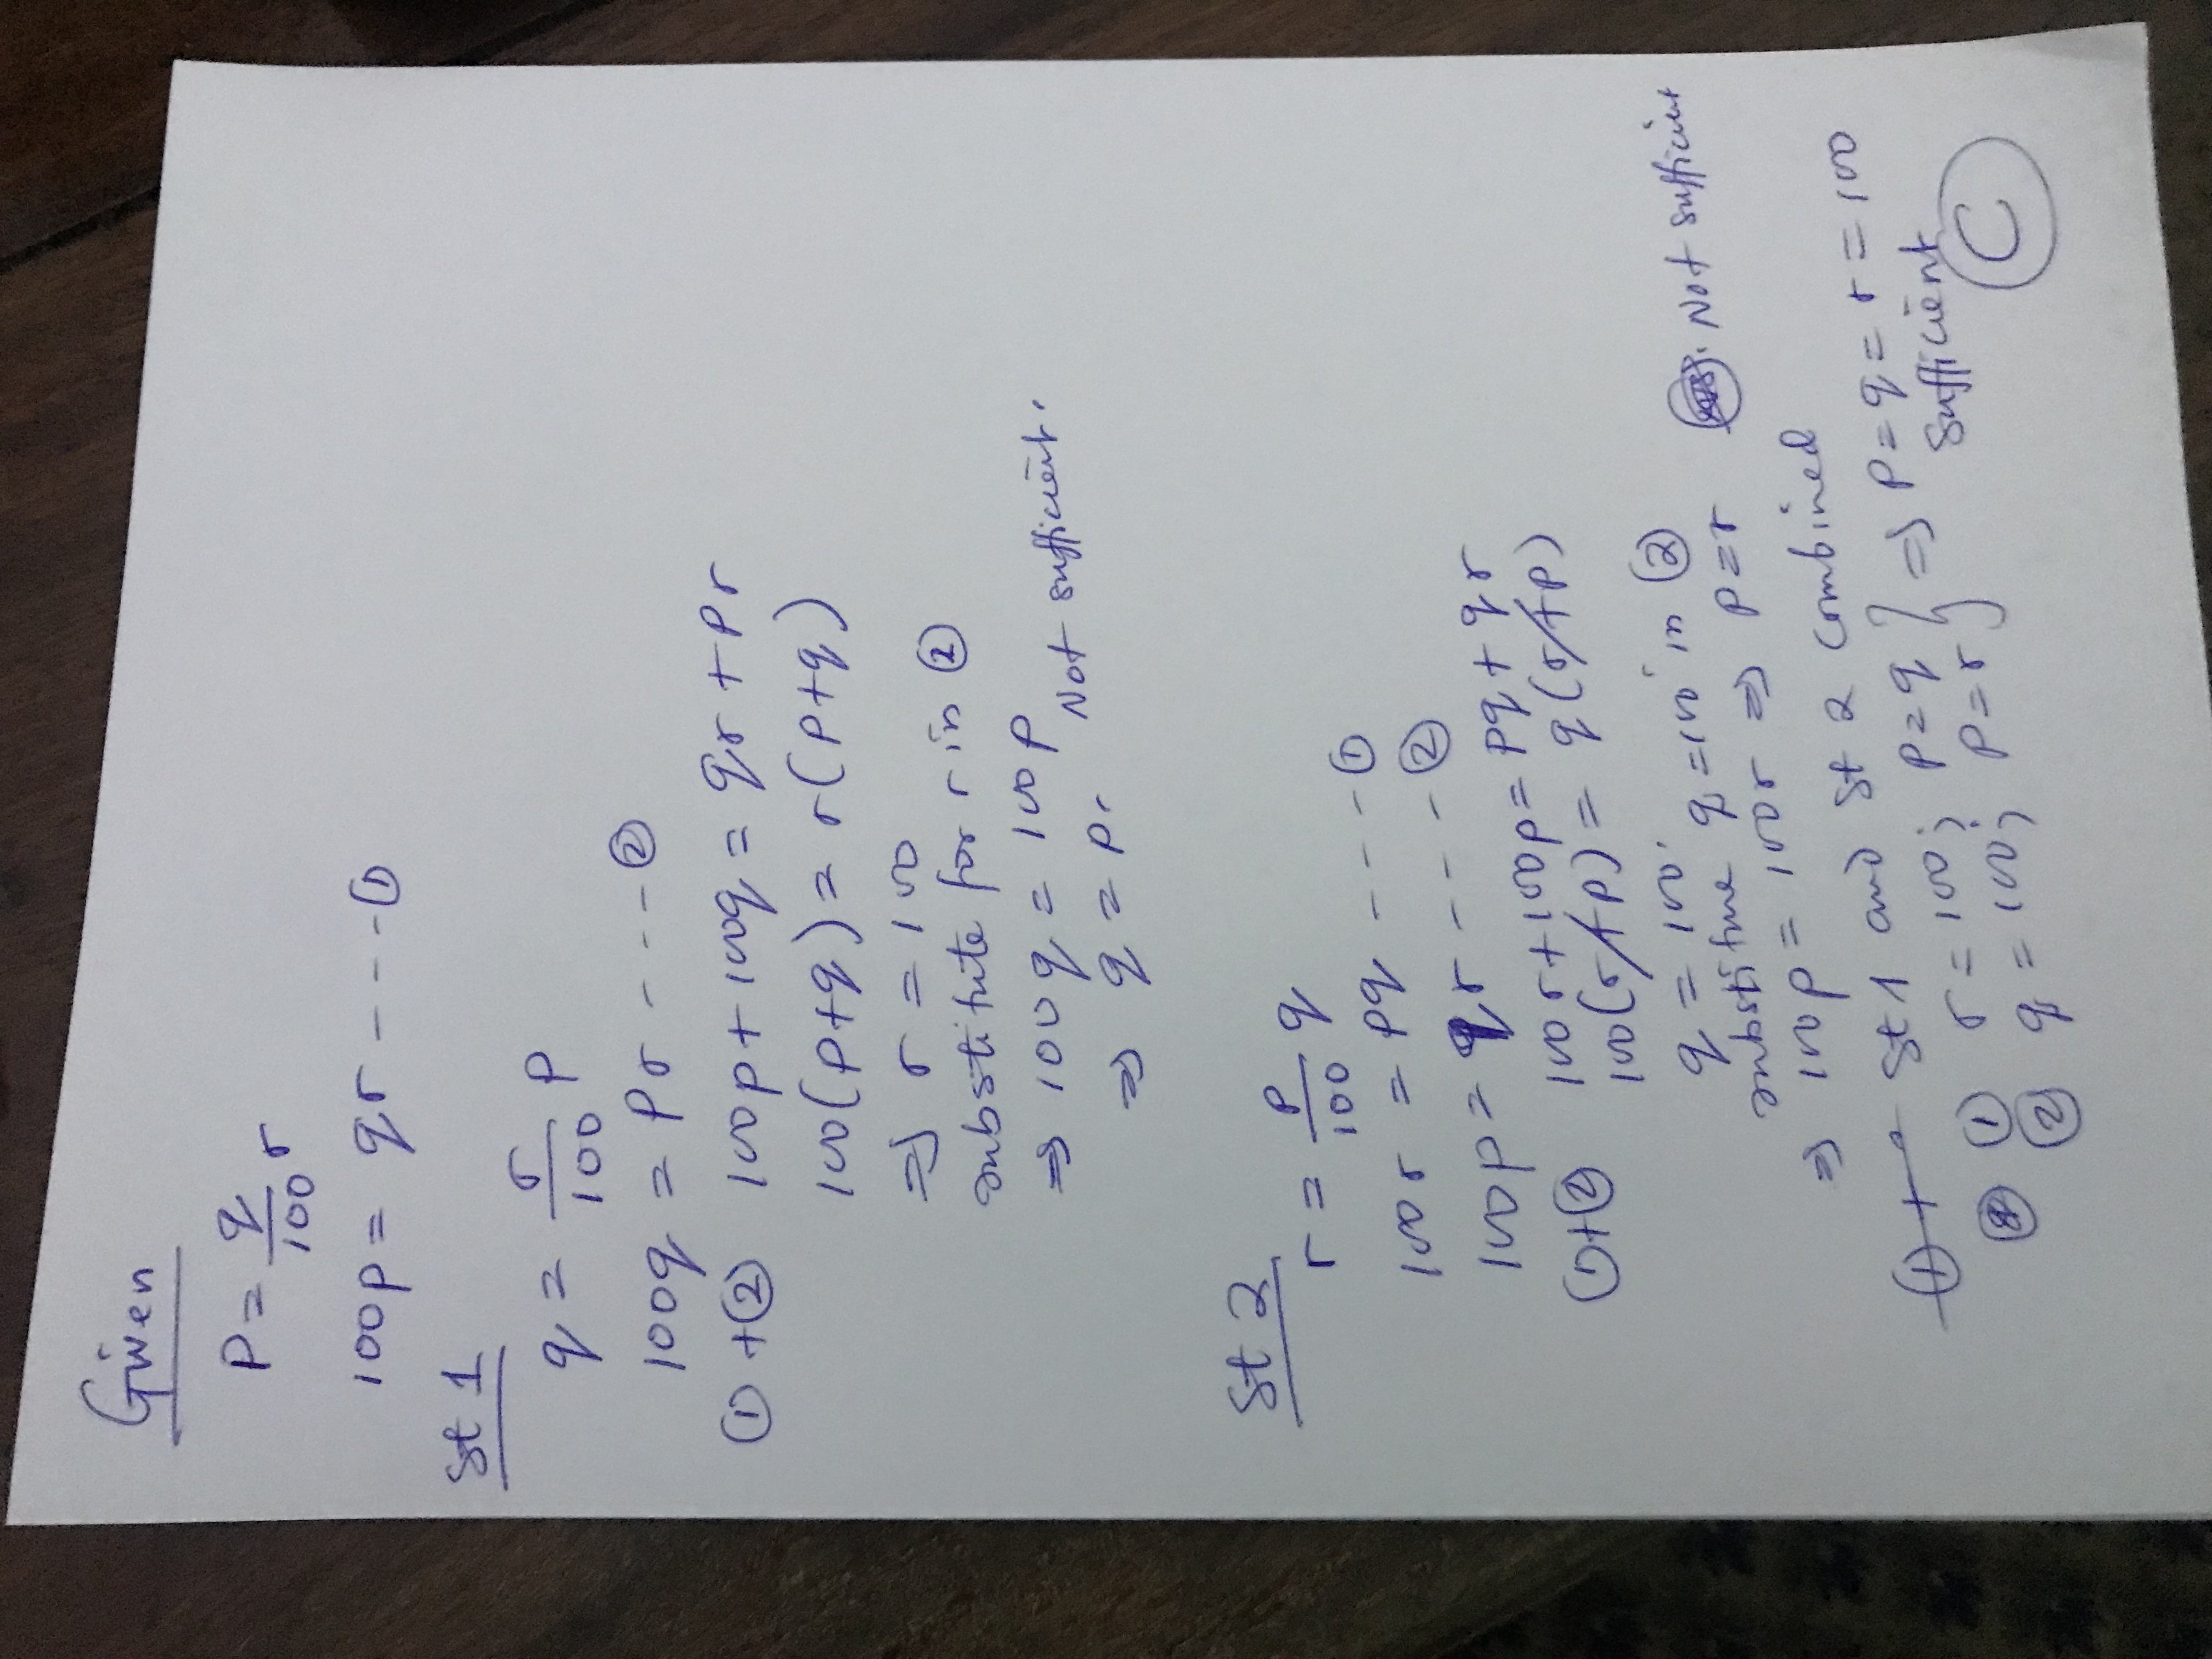 Given
P = q/100 r
100p = qr - - - ①
St 1
q = r/100 P
100q = Pr - - - ②
① + ② 100p + 100q = qr + Pr
100(P+q) = r(P+q)
⇒ r = 100
substitute for r in ②
⇒ 100q = 100P
⇒ q = P. Not sufficient.
St 2
r = P/100 q
100r = Pq - - - ①
100p = qr - - - ②
①+② 100r + 100p = Pq + qr
100(r+P) = q(r+P)
q = 100.
substitute q = 100 in ②
⇒ 100p = 100r ⇒ P = r Not sufficient
St 1 and St 2 combined
① r = 100; P = q } ⇒ P = q = r = 100
② q = 100; P = r } Sufficient
C